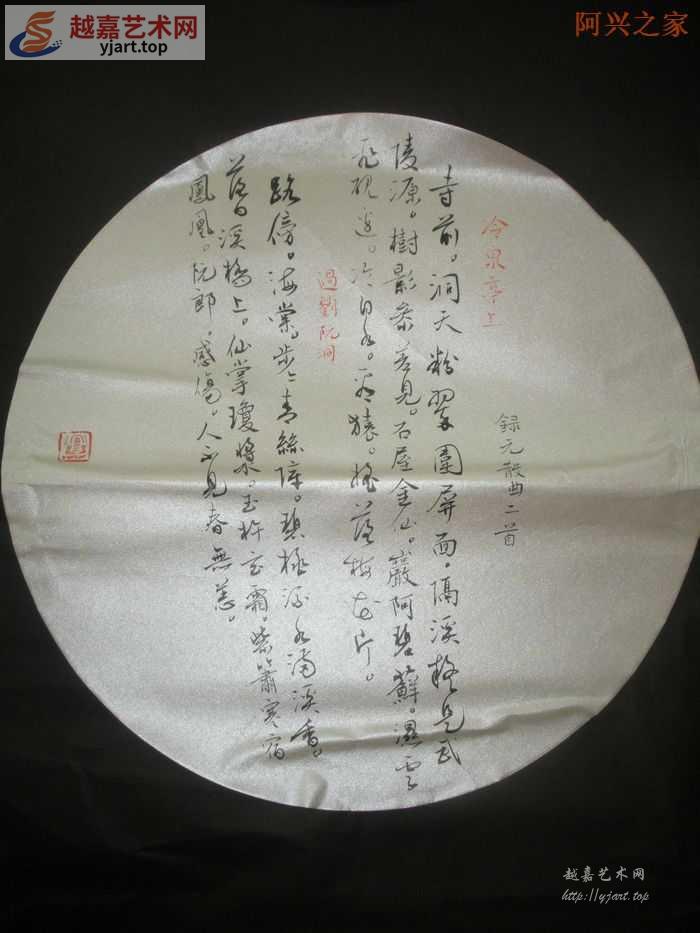 越嘉艺术网
yjart.top
阿兴之家
録元散曲二首
令泉亭上
寺前。洞天粉翠圍屏面。隔溪疑是武
陵源。樹影參差見。石屋金仙。巖阿碧蘚。濕雲
飛硯邊。冷泉。看猿。搖落梅花片。
過劉阮洞
路傍。海棠。步〻青絲障。碧桃源水滿溪香。
落日溪橋上。仙掌瓊漿。玉杵玄霜。紫簫寒宿
鳳凰。阮郎。感傷。人不見春無恙。
越嘉艺术网
http://yjart.top